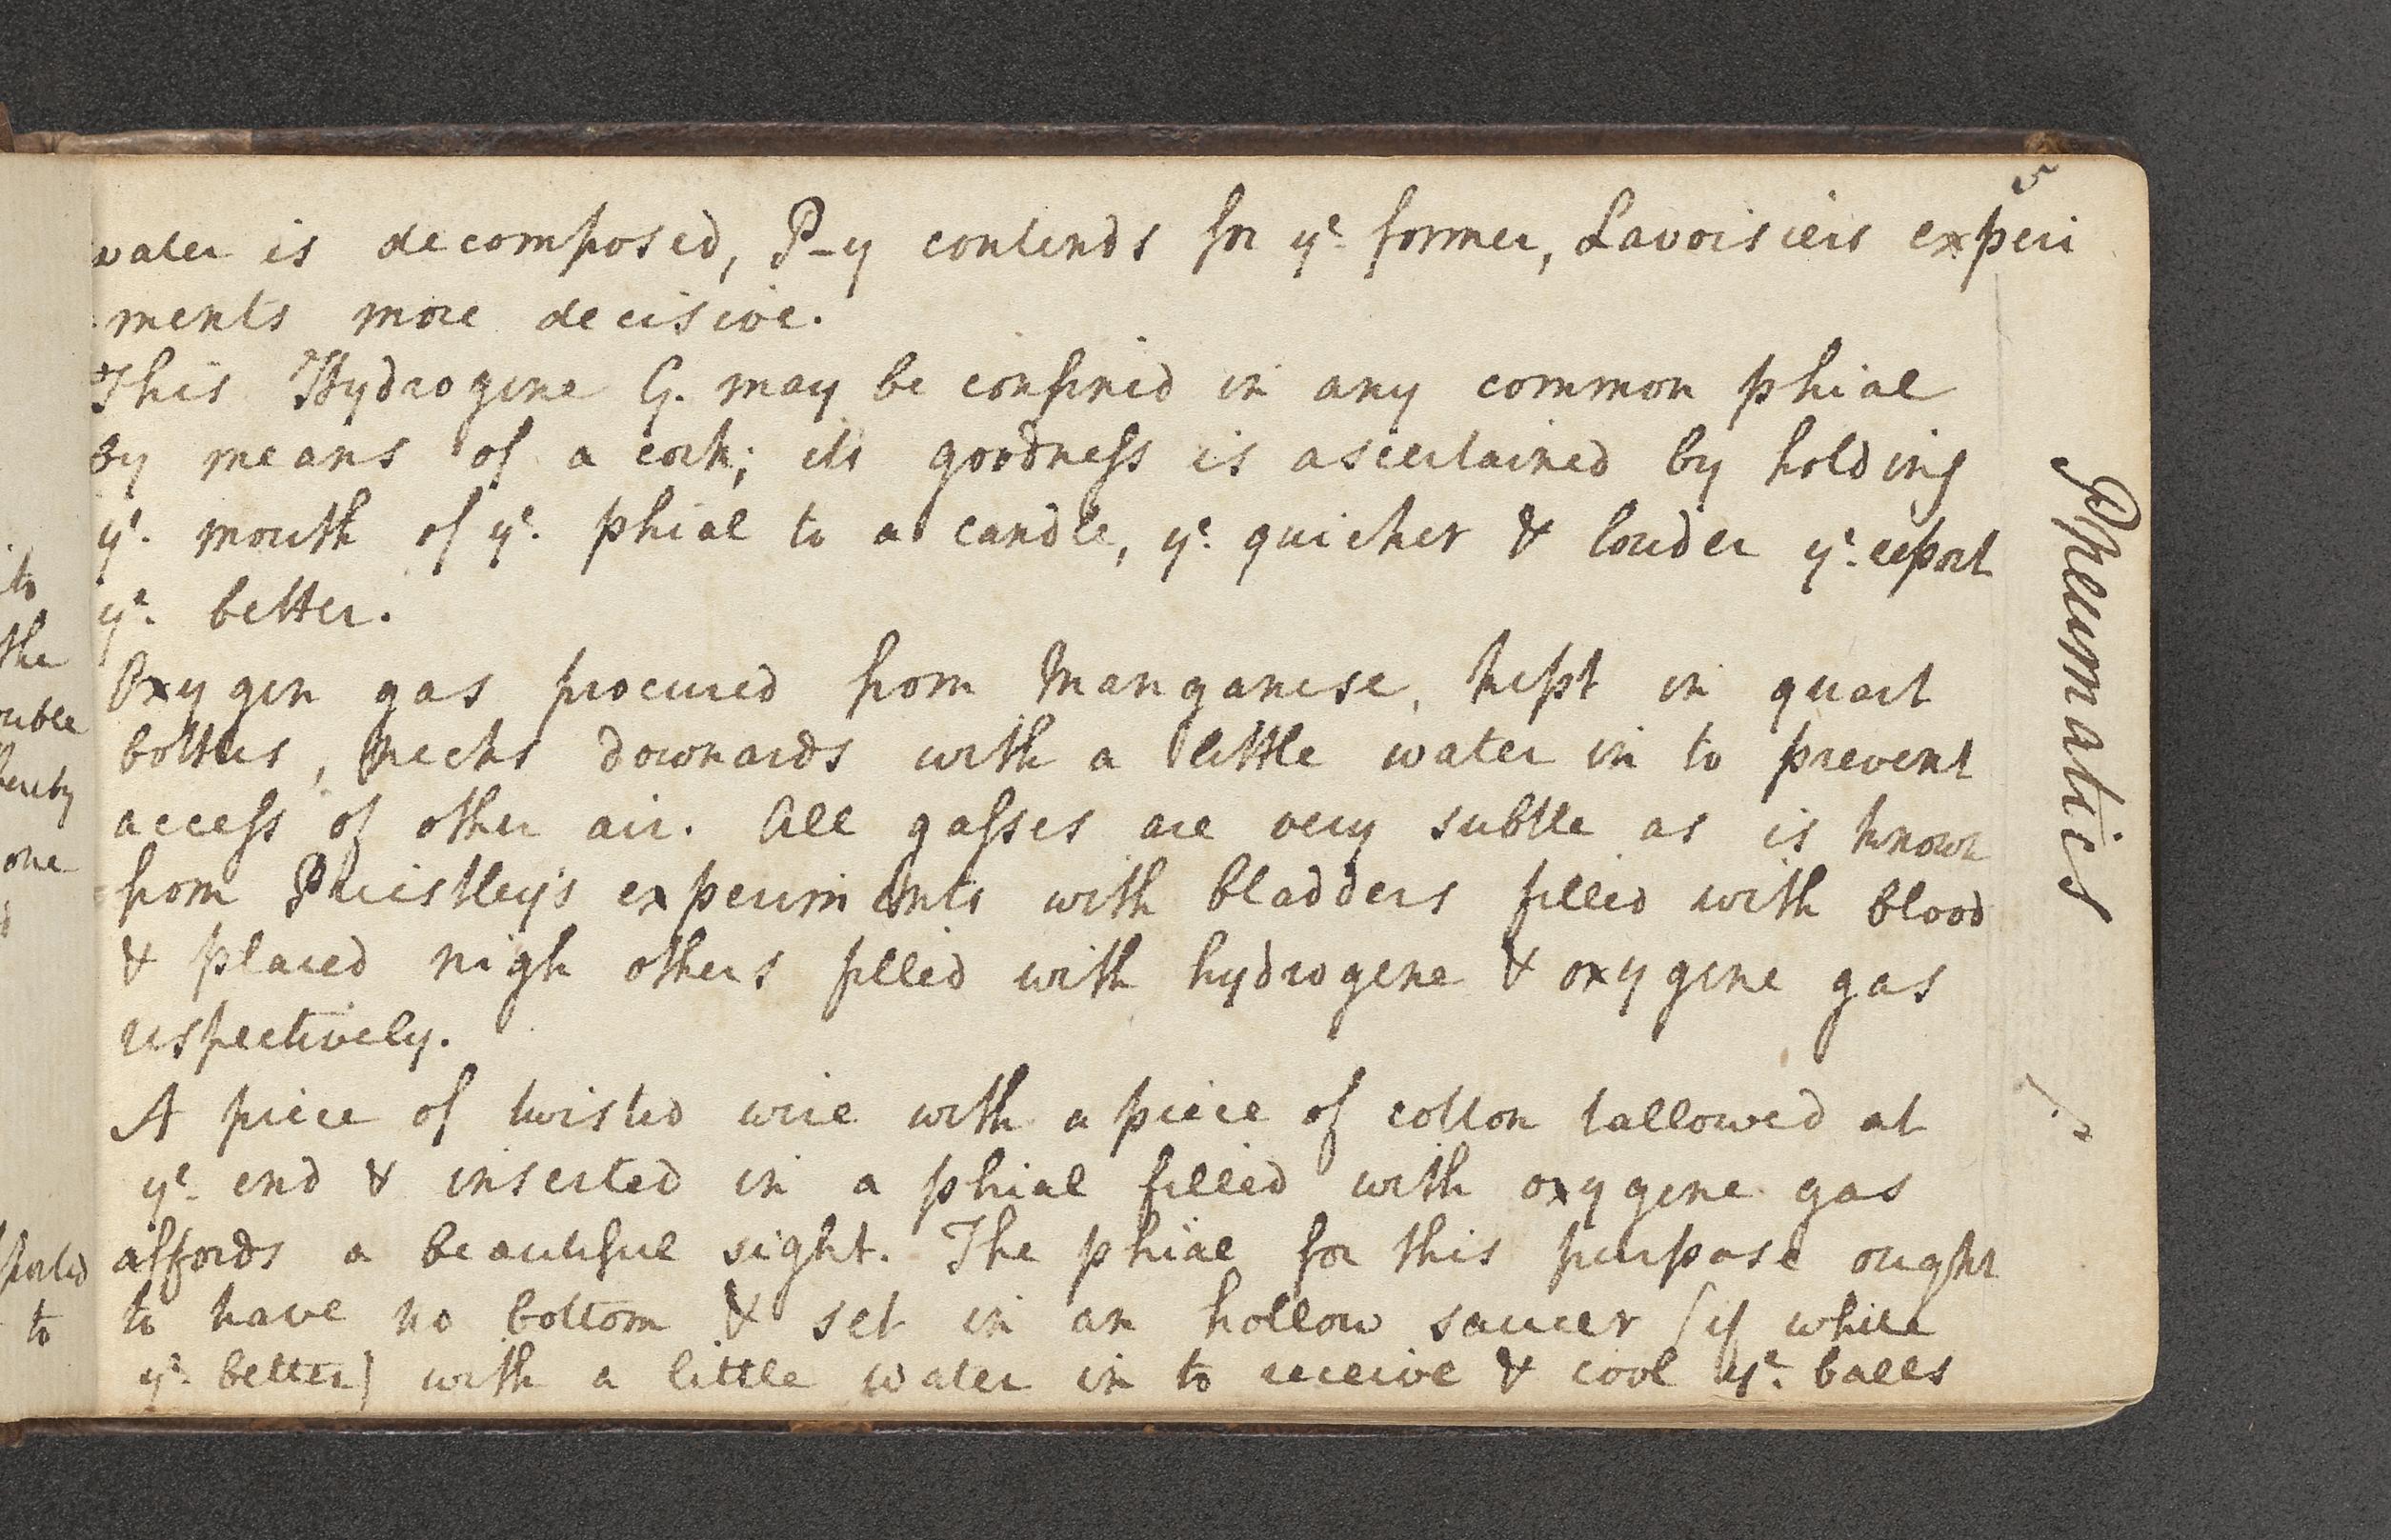 5
water is decomposed, P-y contends for yᵉ former, Lavoisiers experi
-ments more decisive.
This Hydrogene G. may be confined in any common phial
by means of a cork; its goodness is ascertained by holding
yᵉ. mouth of yᵉ. phial to a candle, yᵉ. quicker & louder yᵉ. report
yᵉ. better.
Oxygen gas procured from Manganese, kept in quart
bottles, necks downards with a little water in to prevent
access of other air. All gasses are very subtle as is known
from Priestley's experiments with bladders filled with blood
& placed nigh others filled with hydrogene & oxygene gas
respectively.
A piece of twisted wire with a piece of cotton tallowed at
yᵉ. end & inserted in a phial filled with oxygene gas
affords a beautiful sight. The phial for this purpose ought
to have no bottom & set in an hollow saucer (if white
yᵉ. better) with a little water in to receive & cool yᵉ. balls
Pneumatics
to
the
one
to